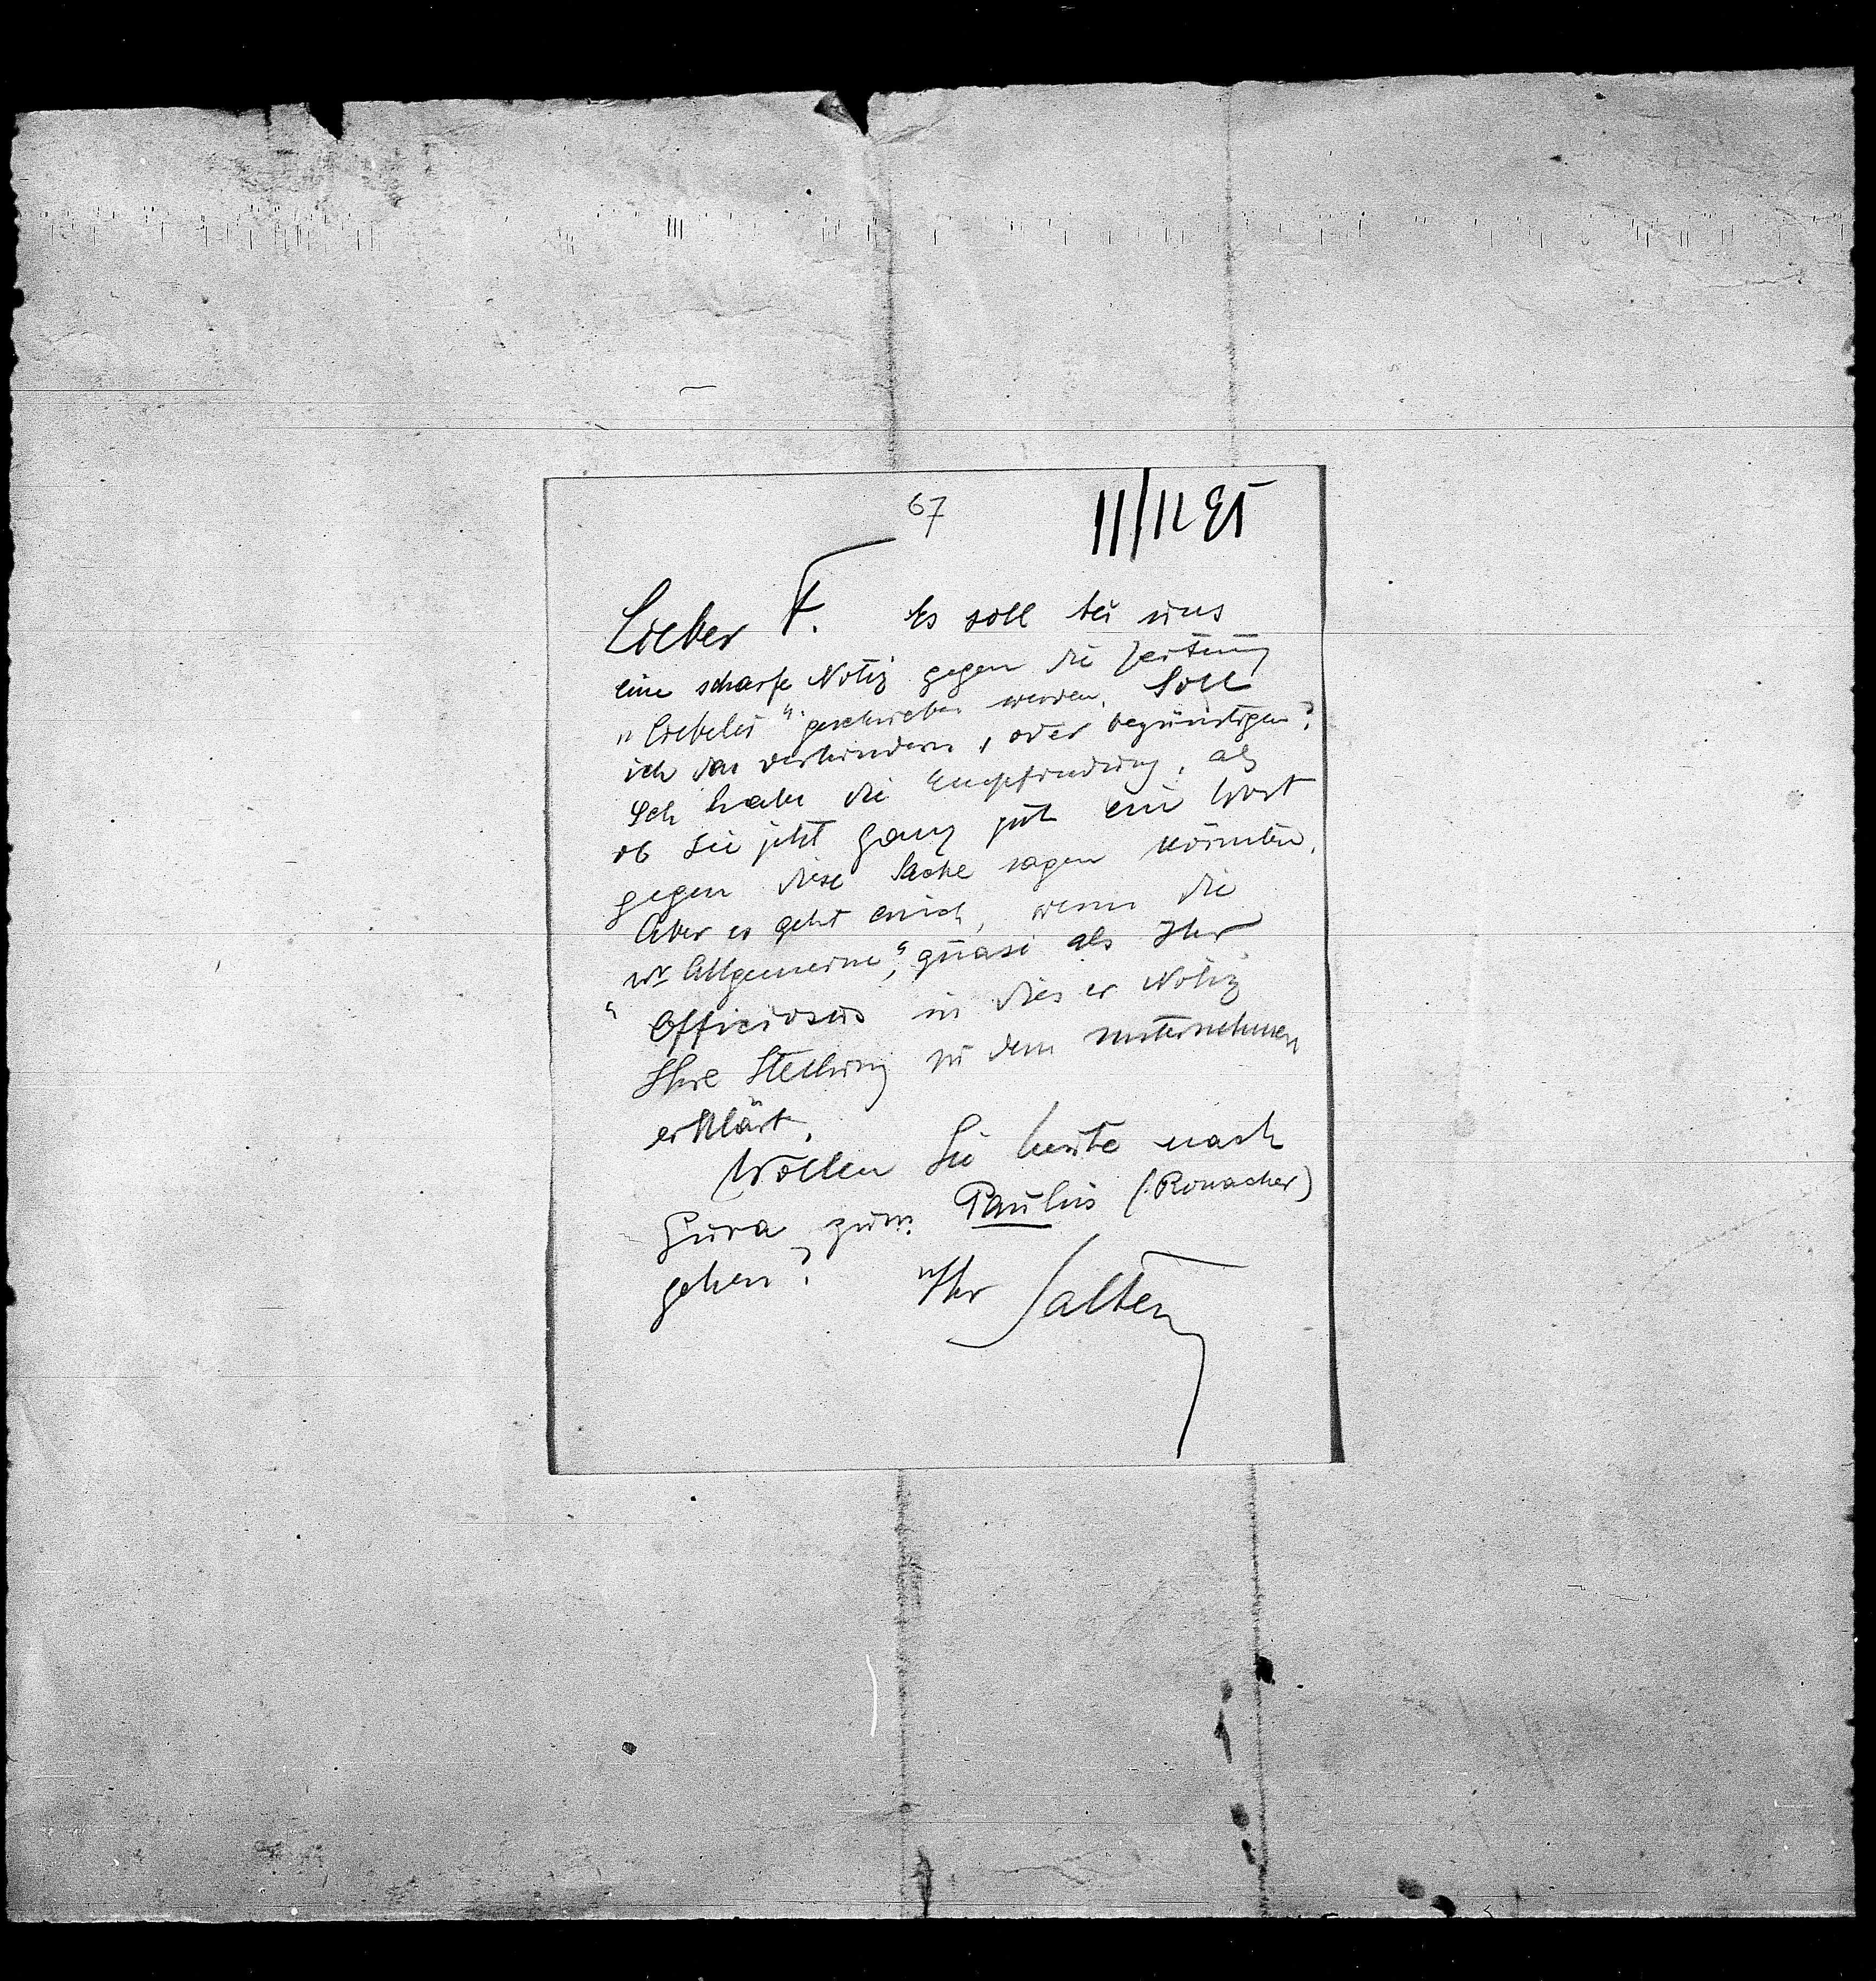 67
11/12 95
Lieber F. Es soll bei uns
eine scharfe Notiz gegen die Zeitung
„Liebelei“ geschrieben werden. Soll
ich das verhindern, oder begünstigen?
Ich habe die Empfindung, als
ob Sie jetzt ganz gut ein Wort
gegen diese Sache sagen könnten.
Aber es geht auch, wenn die
„Wr Allgemeine“, quasi als Ihr
Officiosus in dieser Notiz
Ihre Stellung zu dem Unternehmen
erklärt.
Wollen Sie heute nach
Gura zum Paulus (Ronacher)
gehen?
Ihr Salten